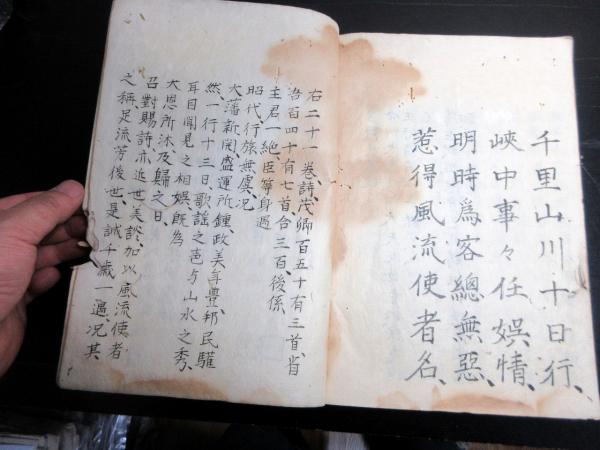 千里山川十日行、
峽中事々任娯情、
明時為客總無惡、
惹得風流使者名、
右二十一卷詩、茂卿百五十有三首、省
治百四十有七首合三百、後係、
主君一絶、臣等身遇
昭代、行旅無虞、况
大藩新闢盛運所鍾、政美年豊、邦民驩
然、一行十三日、歌謡之芭与山水之秀、
耳目聞見之相娯、既為
大恩所沐、及歸之日、
召對賜詩亦近世美證、加以風流使者
之稱足流芳後世、是誠千歳一遇、况其